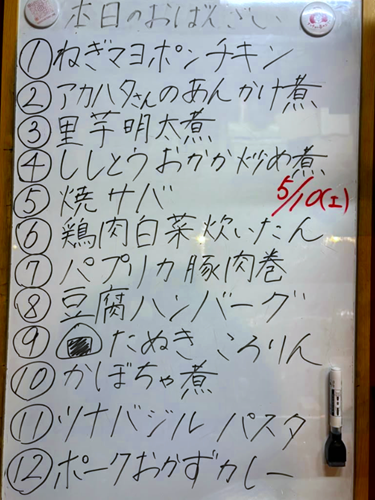 本日のおばんざい
① ねぎマヨポンチキン
② アカハタさんのあんかけ煮
③ 里芋明太煮
④ ししとうおかか炒め煮
⑤ 焼サバ
5/10(土)
⑥ 鶏肉白菜炊いたん
⑦ パプリカ豚肉巻
⑧ 豆腐ハンバーグ
⑨ たぬきころりん
⑩ かぼちゃ煮
⑪ ツナバジルパスタ
⑫ ポークおかずカレー